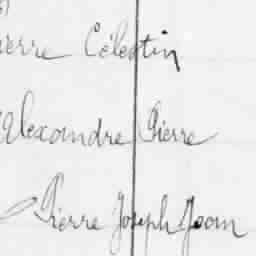 Pierre Célestin
Alexandre Pierre
Pierre Joseph Jean